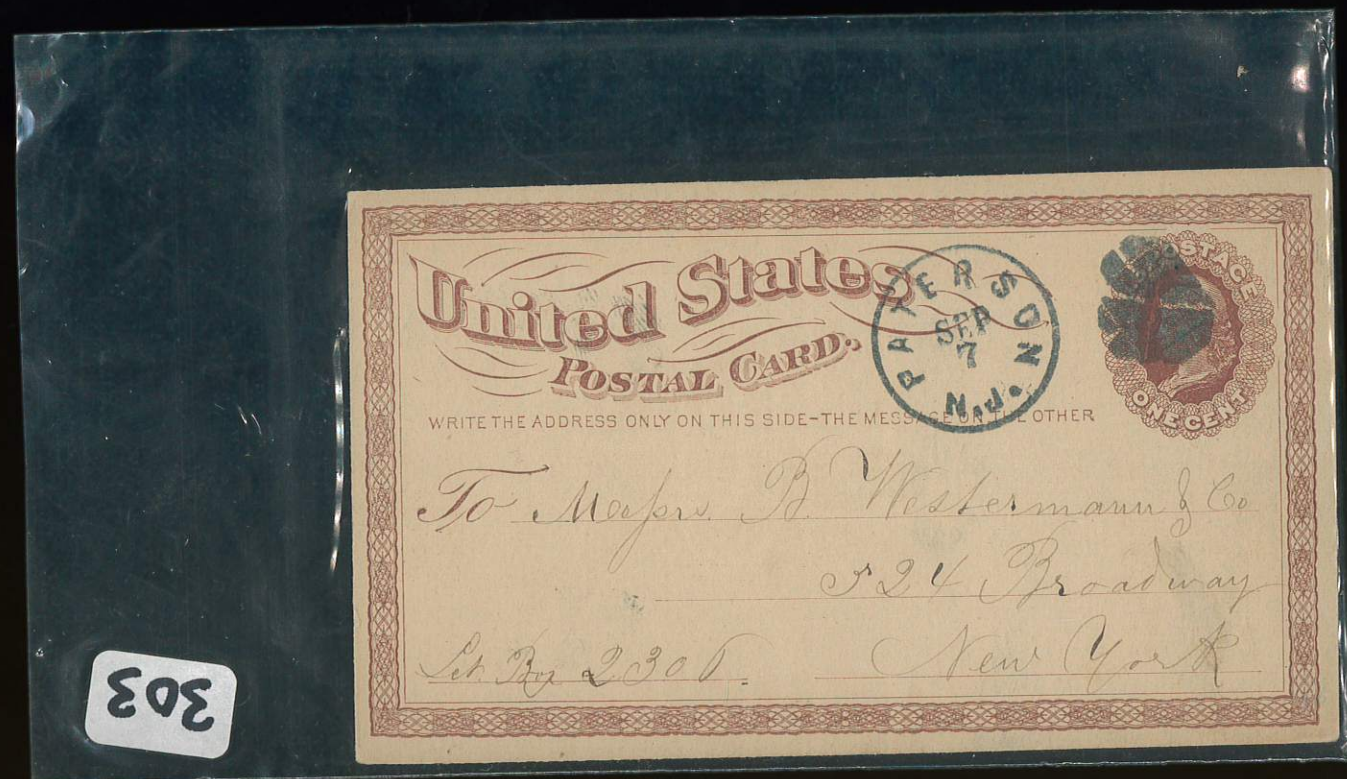 United States
POSTAL CARD.
PATERSON N.J.
SEP
7
POSTAGE
ONE CENT
WRITE THE ADDRESS ONLY ON THIS SIDE-THE MESSAGE ON THE OTHER
To Messrs. B. Westermann & Co
524 Broadway
New York
Box 2306.
303